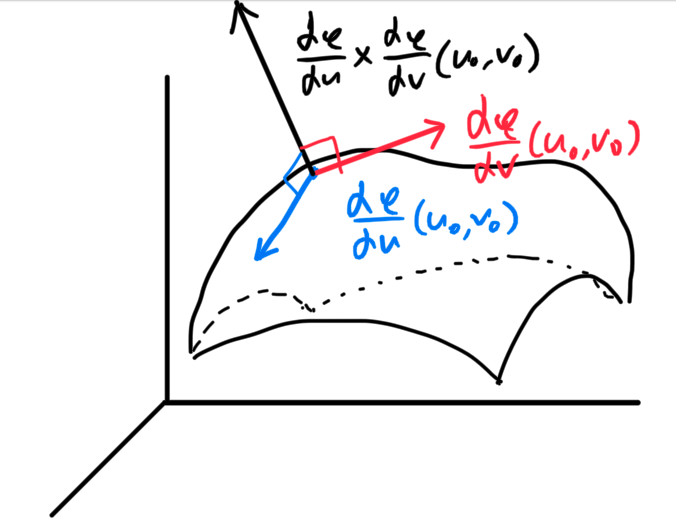 dφ/du × dφ/dv (u₀,v₀)
dφ/dv (u₀,v₀)
dφ/du (u₀,v₀)